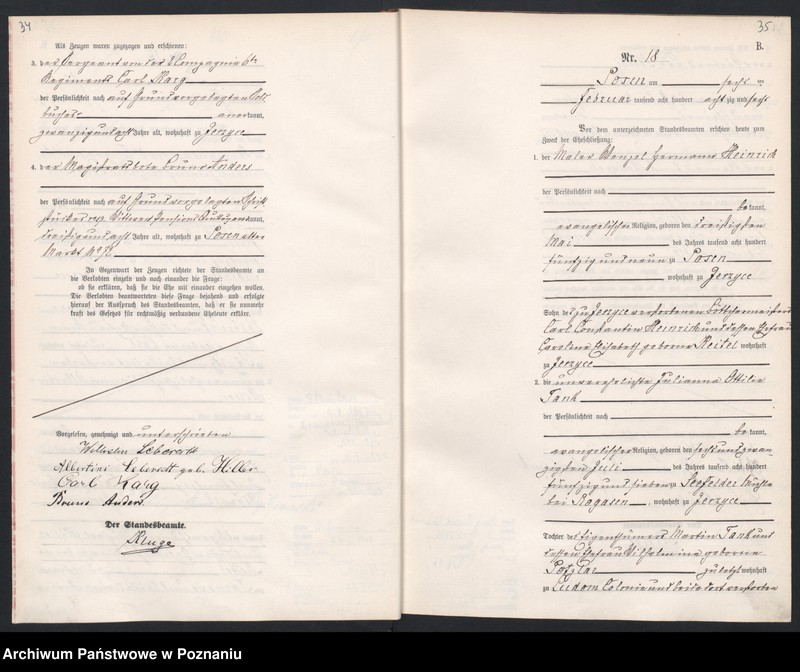 34
Als Zeugen waren zugezogen und erschienen:
3. der Sergeant von der Compagnie 6ten
Regiments Carl Marg
der Persönlichkeit nach auf Grund vorgelegten Sold
buches anerkannt,
zwanzigundacht Jahre alt, wohnhaft zu Jerzyce
4. der Magistratsbote Bruno Anders
der Persönlichkeit nach auf Grund vorgelegten Schrift
kannt,
dreißigundacht Jahre alt, wohnhaft zu Posen alter
Markt No
In Gegenwart der Zeugen richtete der Standesbeamte an
die Verlobten einzeln und nach einander die Frage:
ob sie erklären, daß sie die Ehe mit einander eingehen wollen.
Die Verlobten beantworteten diese Frage bejahend und erfolgte
hierauf der Ausspruch des Standesbeamten, daß er sie nunmehr
kraft des Gesetzes für rechtmäßig verbundene Eheleute erkläre.
Vorgelesen, genehmigt und unterschrieben
Wilhelm Leberecht
Albertine Leberecht geb. Hiller
Carl Marg
Bruno Anders.
Der Standesbeamte.
Kluge
35
B.
Nr. 18
Posen am sechs ten
Februar tausend acht hundert acht zig und sechs
Vor dem unterzeichneten Standesbeamten erschien heute zum
Zweck der Eheschließung:
1. der Maler Wenzel Hermann Heinrich
der Persönlichkeit nach
be kannt,
evangelischer Religion, geboren den dreißigsten
Mai des Jahres tausend acht hundert
fünfzig und neun zu Posen
wohnhaft zu Jerzyce
Sohn des zu Jerzyce verstorbenen Böttchermeisters
Carl Constantin Heinrich und dessen Ehefrau
Caroline Elisabeth geborene Reitel wohnhaft
zu Jerzyce
2. die unverehelichte Julianna Ottilie
Tank
der Persönlichkeit nach
be kannt,
evangelischer Religion, geboren den sechsundzwan
zigsten Juli des Jahres tausend acht hundert
fünfzig und sieben zu Seefelder Mühle
bei Rogasen, wohnhaft zu Jerzyce
Tochter des Eigenthümers Martin Tank und
dessen Ehefrau Wilhelmine geborene
zuletzt wohnhaft
zu Ludom Colonie und beide dort verstorben
Archiwum Państwowe w Poznaniu